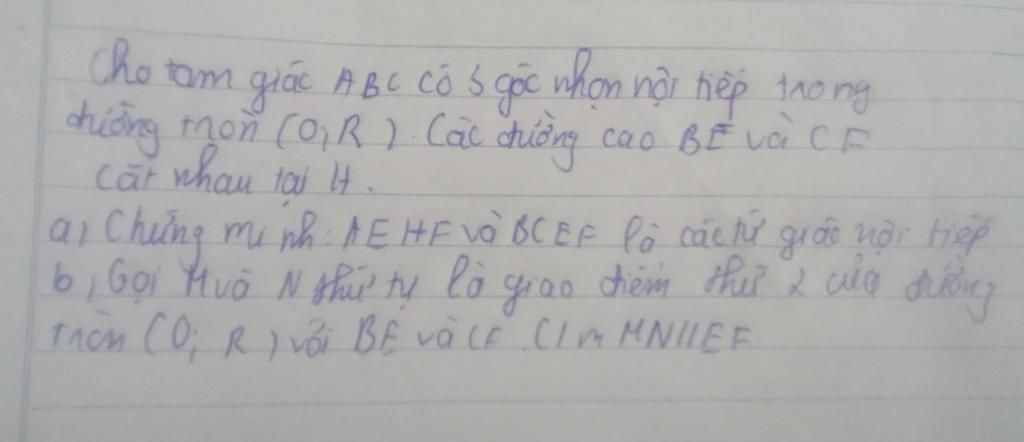 Cho tam giác ABC có 3 góc nhọn nội tiếp trong
đường tròn (O, R). Các đường cao BE và CF
cắt nhau tại H.
a, Chứng minh: AEHF và BCEF là các tứ giác nội tiếp
b, Gọi M và N thứ tự là giao điểm thứ 2 của đường
tròn (O; R) với BE và CF. C/m MN//EF